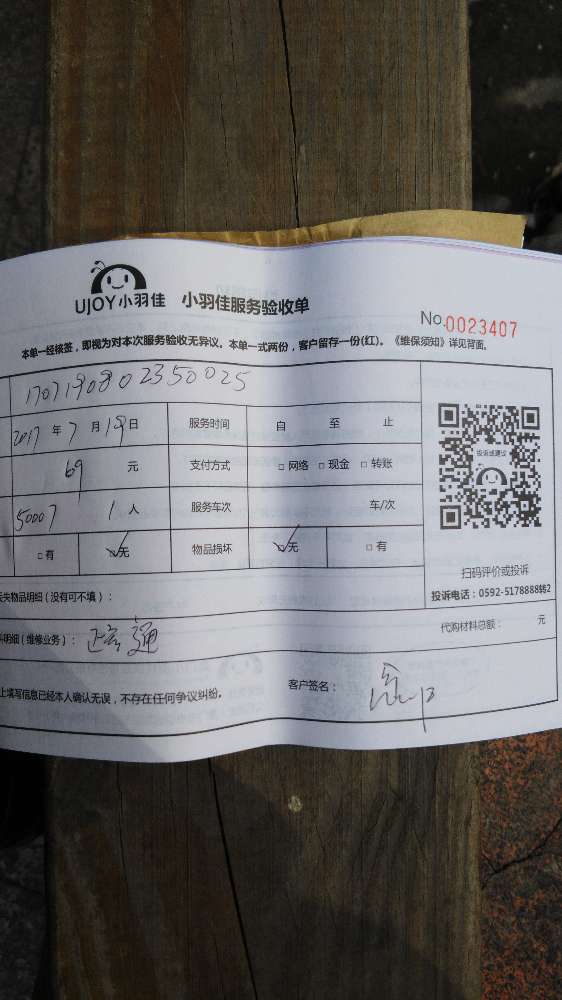 UJOY小羽佳 小羽佳服务验收单
No.0023407
本单一经核签，即视为对本次服务验收无异议。本单一式两份，客户留存一份(红)。《维保须知》详见背面。
1707190802350025
2017 年 7 月 19 日 服务时间 自 至 止
69 元 支付方式 □网络 □现金 □转账
50007 1 人 服务车次 车/次
□有 ☑无 物品损坏 ☑无 □有
投诉或建议
扫码评价或投诉
投诉电话：0592-5178888转2
失物品明细（没有可不填）：
明细（维修业务）： 通 代购材料总额： 元
上填写信息已经本人确认无误，不存在任何争议纠纷。 客户签名：